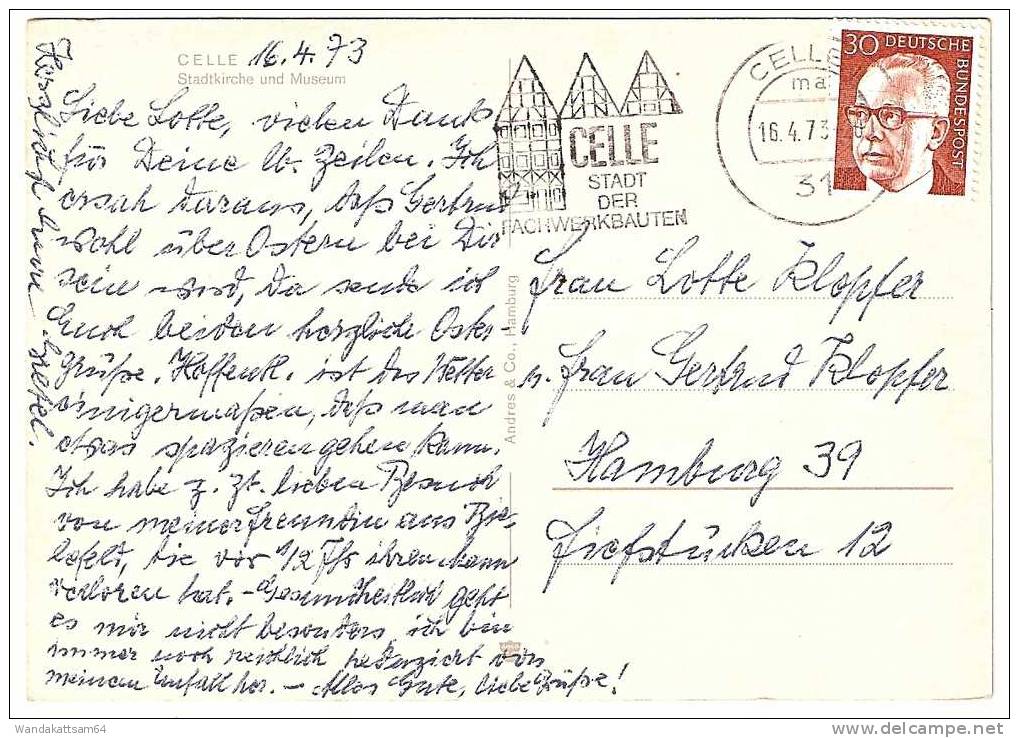 CELLE
Stadtkirche und Museum
16.4.73
Liebe Lotte, vielen Dank
für Deine lb. Zeilen. Ich
ersah daraus, daß Gertrud
wohl über Ostern bei Dir
sein wird, da sende ich
Euch beiden herzliche Oster-
grüße. Hoffentl. ist das Wetter
einigermaßen, daß man
etwas spazierengehen kann.
Ich habe z. Zt. lieben Besuch
von meiner Freundin aus Bie-
lefeld, die vor 1/2 Jhr ihren Mann
verloren hat. - Gesundheitlich geht
es mir nicht besonders, ich bin
immer noch reichlich
meinem Unfall her. - Alles Gute, liebe Grüße!
Herzlichst Eure Gretel.
Andres & Co., Hamburg
CELLE
STADT
DER
FACHWERKBAUTEN
CELLE
16.4.73
31
30 DEUTSCHE
BUNDESPOST
Frau Lotte Klopfer
u. Frau Gertrud Klopfer
Hamburg 39
Tiefstücken 12
Wandakattsam64
delcampe.net